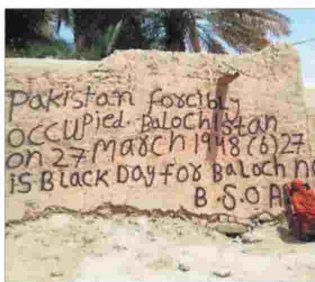 Pakistan forcibly
OCCUPied. Balochistan
on 27 march 1948 (6) 27
is Black Day for Baloch na
B.S.O A